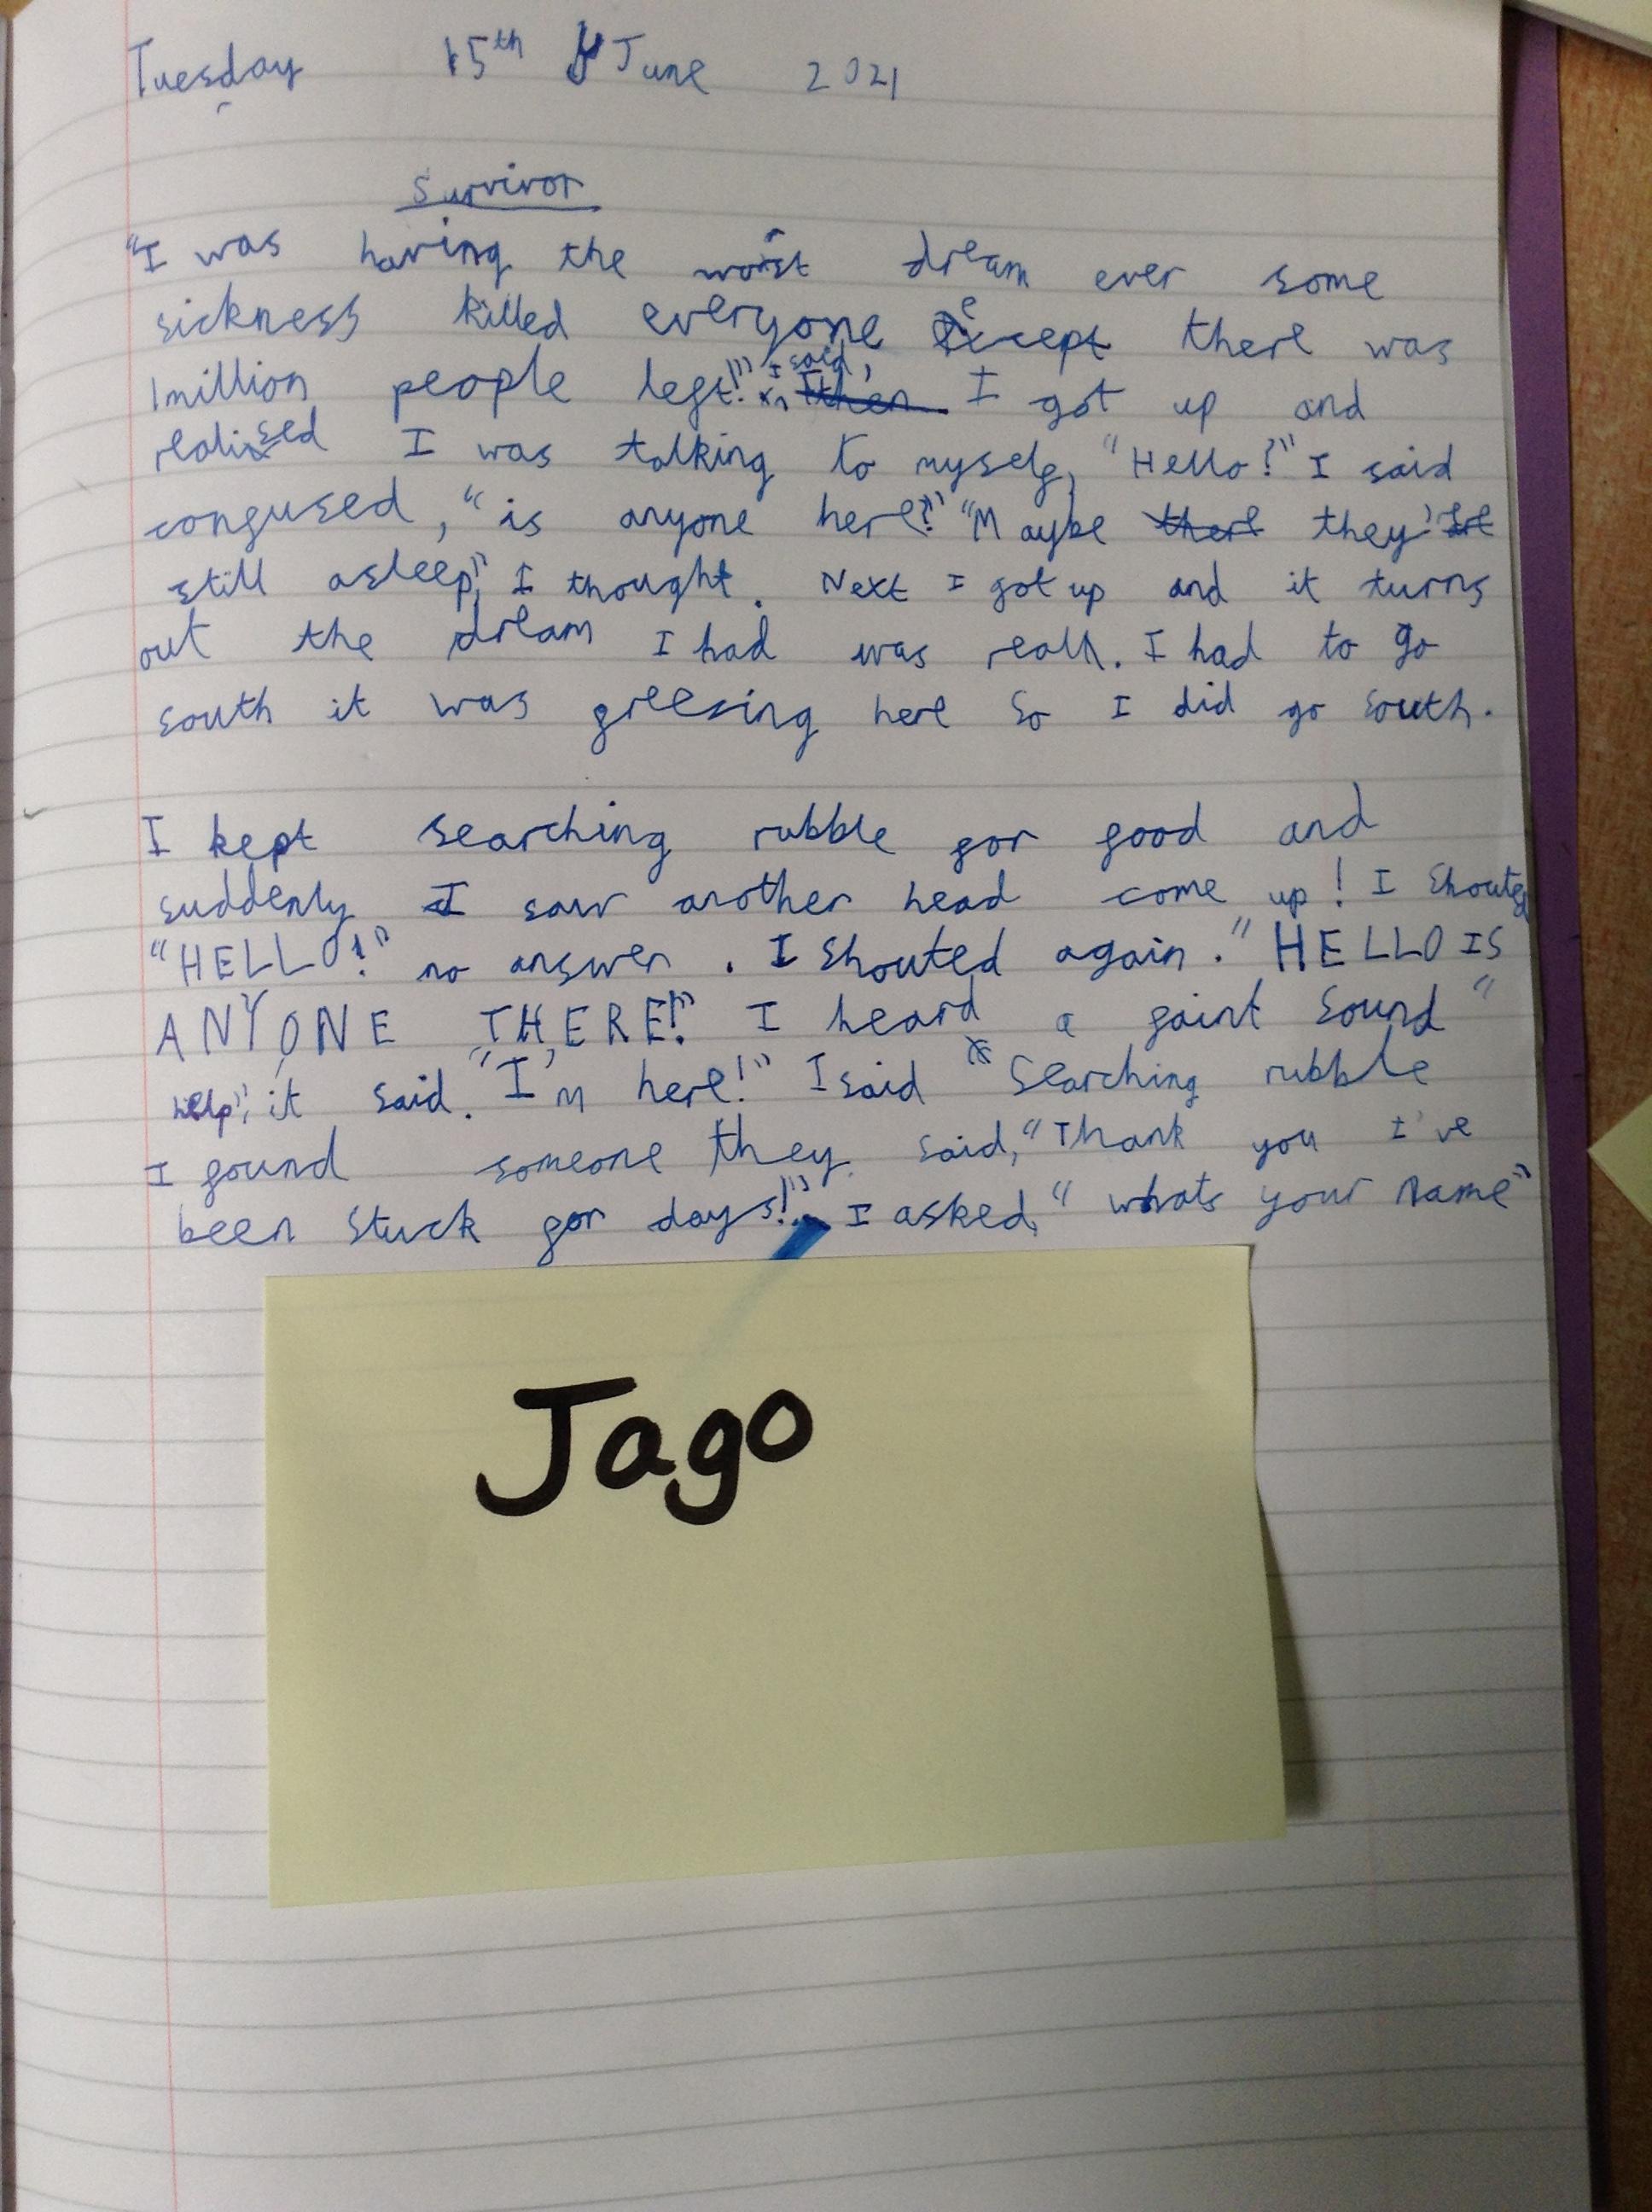 Tuesday 15th June 2021
Survivor
"I was having the worst dream ever some
sickness killed everyone except there was
1million people left!" I said, I got up and
realised I was talking to myself, "Hello?" I said
confused, "is anyone here?" "Maybe they're
still asleep," I thought. Next I got up and it turns
out the dream I had was real. I had to go
south it was freezing here so I did go south.
I kept searching rubble for food and
suddenly I saw another head come up! I shouted
"HELLO!" no answer. I shouted again. "HELLO IS
ANYONE THERE!" I heard a faint sound "
help", it said. "I'm here!" I said Searching rubble
I found someone they said, "Thank you I've
been stuck for days!" I asked, "whats your name"
Jago